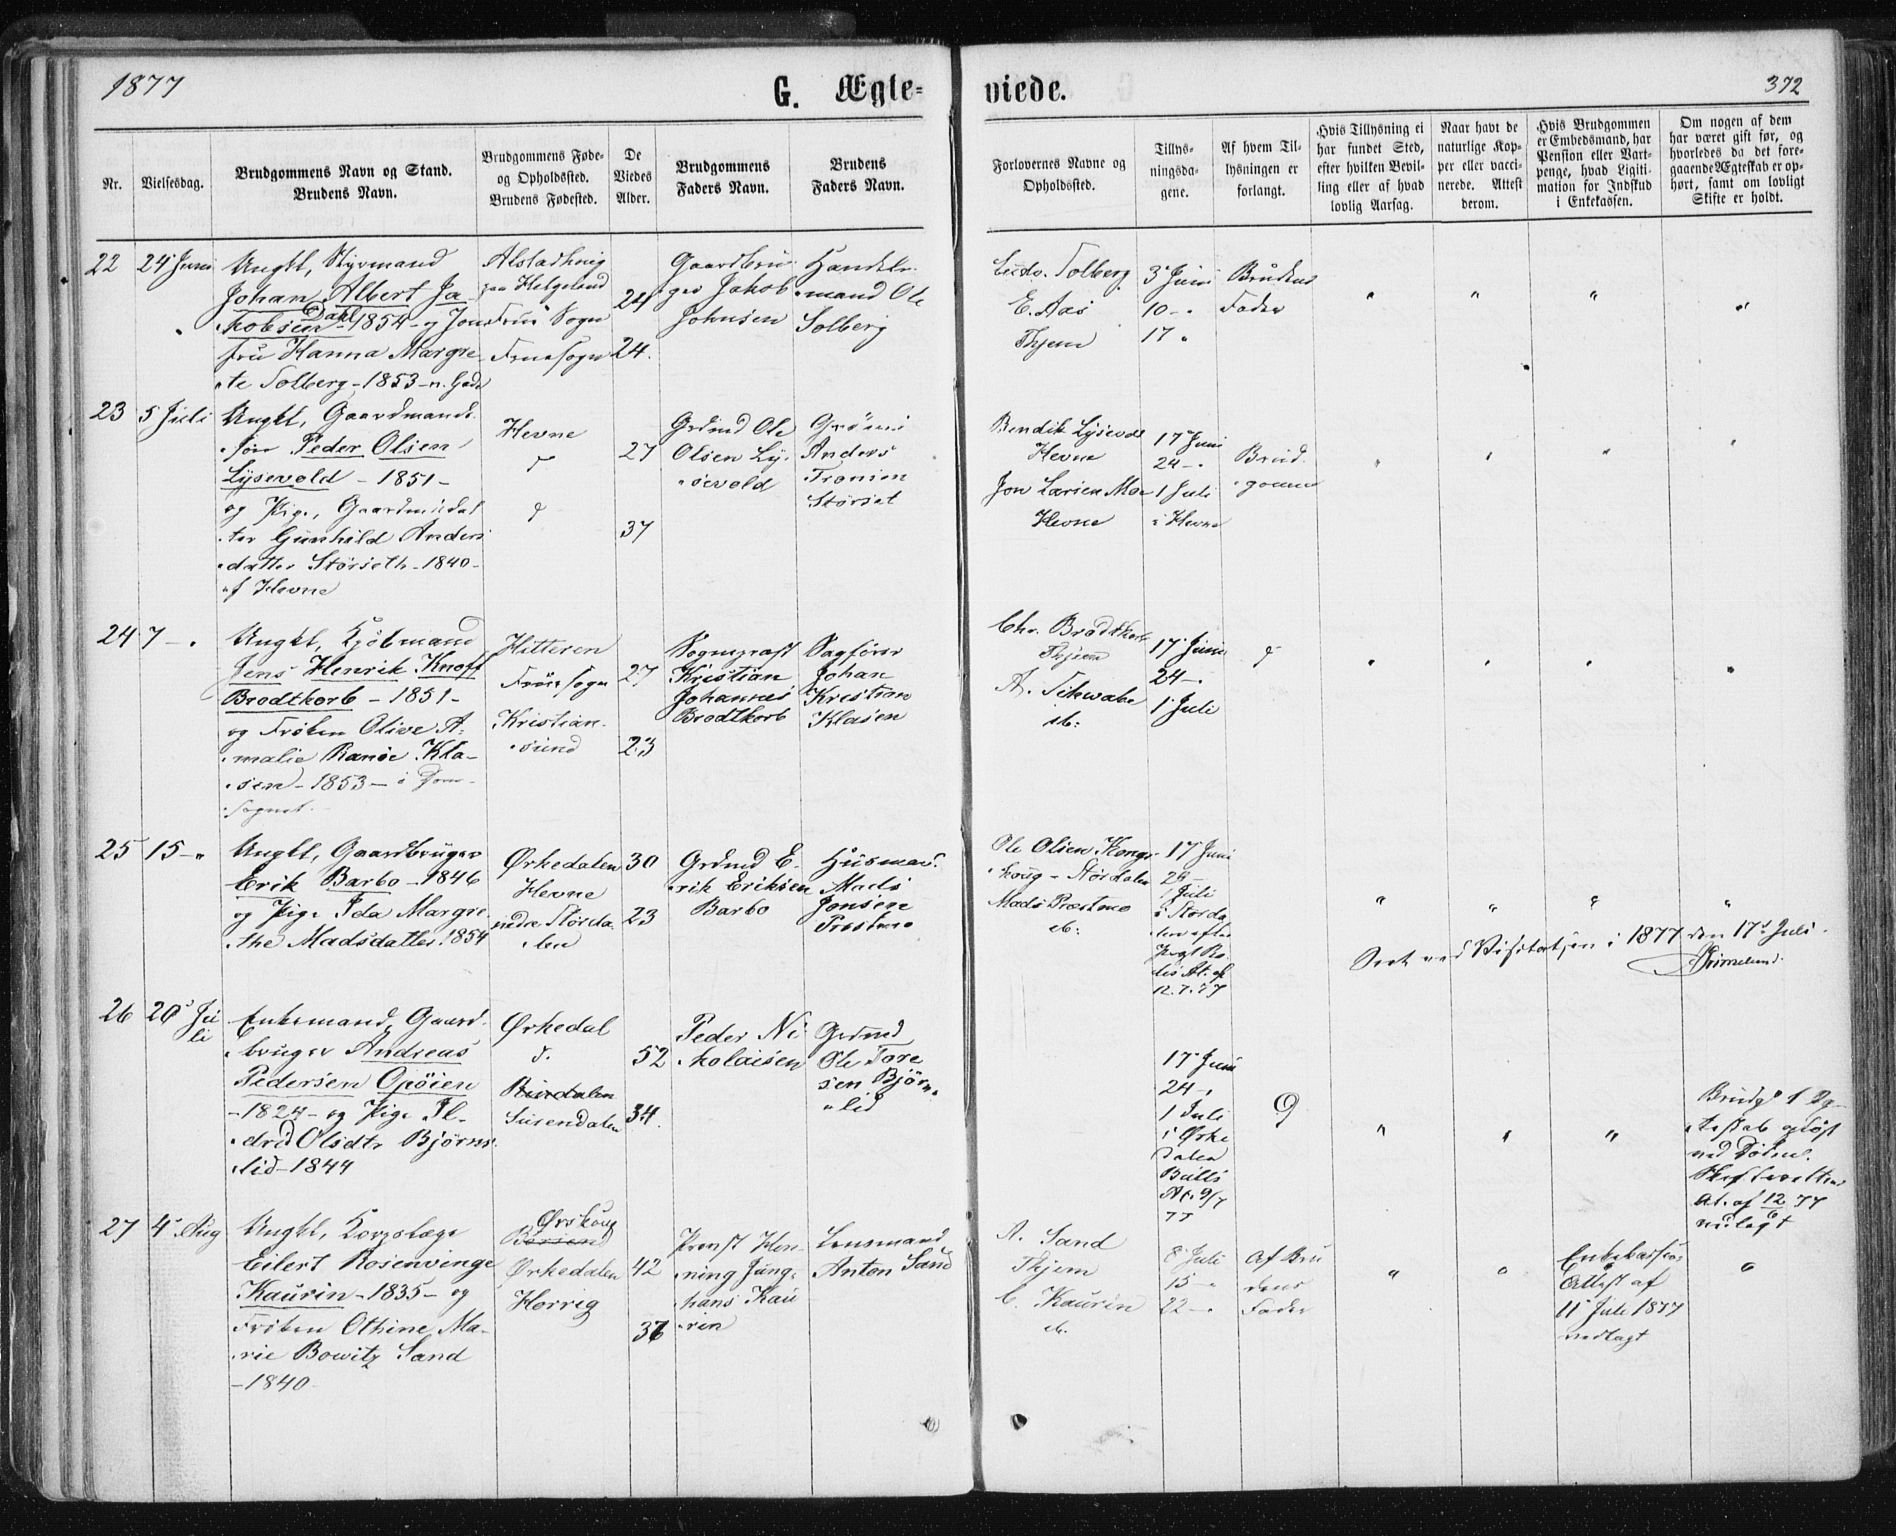 1877
G. Ægte-
viede.
372
Nr.
Vielsesdag.
Brudgommens Navn og Stand.
Brudens Navn.
Brudgommens Føde-
og Opholdssted.
Brudens Fødested.
De
Viedes
Alder.
Brudgommens
Faders Navn.
Brudens
Faders Navn.
Forlovernes Navne og
Opholdssted.
Tillys-
ningsda-
gene.
Af hvem Til-
lysningen er
forlangt.
Hvis Tillysning ei
har fundet Sted,
efter hvilken Bevil-
ling eller af hvad
lovlig Aarsag.
Naar havt de
naturlige Kop-
per eller vacci-
nerede. Attest
derom.
Hvis Brudgommen
er Embedsmand, har
Pension eller Vart-
penge, hvad Ligiti-
mation for Indskud
i Enkekassen.
Om nogen af dem
har været gift før, og
hvorledes da det fore-
gaaende Ægteskab er op-
hørt, samt om lovligt
Skifte er holdt.
22
24 Juni
Ungkl, Styrmand
Johan Albert Ja
Dahl
kobsen 1854 - og Jom
fru Hanna Margre
te Solberg - 1853 -
Alstadhoug
paa Helgeland
Frue Sogn
Fruesogn
24
24.
Gaardbru
ger Jakob
Johnsen
Handels
mand Ole
Solberg
Ludv. Solberg
E. Aas
Thjem
3 Juni
10 - "
17 "
Brudens
Fader
" " " "
23
5 Juli
Ungkl, Gaardmands
søn Peder Olsen
Lysevold - 1851 -
og Pige, Gaardmdsdat
ter Gunhild Anders
datter Størseth - 1840 -
af Hevne
Hevne
d
d
27
37
Grdmd Ole
Olsen Ly-
sevold
Grdmd
Anders
Fronsen
Størset
Bendik Lysevold
Hevne
Jon Larsen Moe
Hevne
17 Juni
24 - "
1 Juli
i Hevne
Brud
gommen
" " " "
24
7 - "
Ungkl, Kjøbmand
Jens Henrik Knoff
Brodtkorb - 1851 -
og Frøken Olive A-
malie Ranøe Kla-
sen - 1853 - i Dom-
Sognet.
Hitteren
Fruesogn
Kristian-
sund
27
23
Sognepræst
Kristian
Johannes
Brodtkorb
Sagfører
Johan
Kristian
Klasen
Chr. Brodtkorb
Thjem
A. Schwabe
ib:
17 Juni
24 - "
1 Juli
d
" " " "
25
15 - "
Ungkl, Gaardbruger
Erik Barbo - 1846
og Pige Ida Margre
the Madsdatter 1854
Ørkedalen
Hevne
nedre Størda
len
30
23
Grdmd E-
rik Eriksen
Barbo
Husmand
Mads
Jonsen
Præstmo
Ole Olsen Kongs
houg - Stordalen
Mads Præstmo
ib:
17 Juni
24 -
1 Juli
i Størda
len efter
12.7.77
" " " "
Seet ved Visitatsen i 1877 den 17de Juli.
Grimelund.
26
20 Ju
li
Enkemand, Gaard-
bruger Andreas
Pedersen Opøien
- 1824 - og Pige Il-
drid Olsdtr Bjørns
lid - 1844
Ørkedal
d.
Surendalen
52
34.
Peder Ni
kolaisen
Grdmd
Ole Tore
sen Bjørns
lid
17 Juni
24 - "
1 Juli
i Ørke
dalen
At. 9/7
77
d
" " "
Brudgs 1 Æg-
teskab opløst
ved Døden.
Skifterettens
At. af 12/6 77
vedlagt
27
4 Aug
Ungkl, Korpslæge
Eilert Rosenvinge
Kaurin - 1835 - og
Frøken Othine Ma-
rie Bowitz Sand
- 1840.
Ørskoug
Børsen
Ørkedalen
Horrig
42
36
Provst Hen-
ning Jung-
hans Kau
rin
Lensmand
Anton Sand
A. Sand
Thjem
C. Kaurin
ib.
8 Juli
15 - "
22 - "
Af Bru
dens
Fader
" "
Enkekassens
Attest af
11 Juli 1877
vedlagt
"